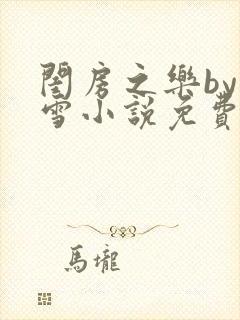 閨房之樂by
雪小說免費
馬壠